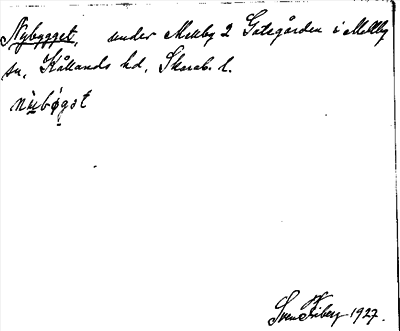 Nybygget, under Mellby 2 Gategården i Mellby
sn, Kållands hd, Skarab. l.
nùbǿgət
Sven Friberg 1927.